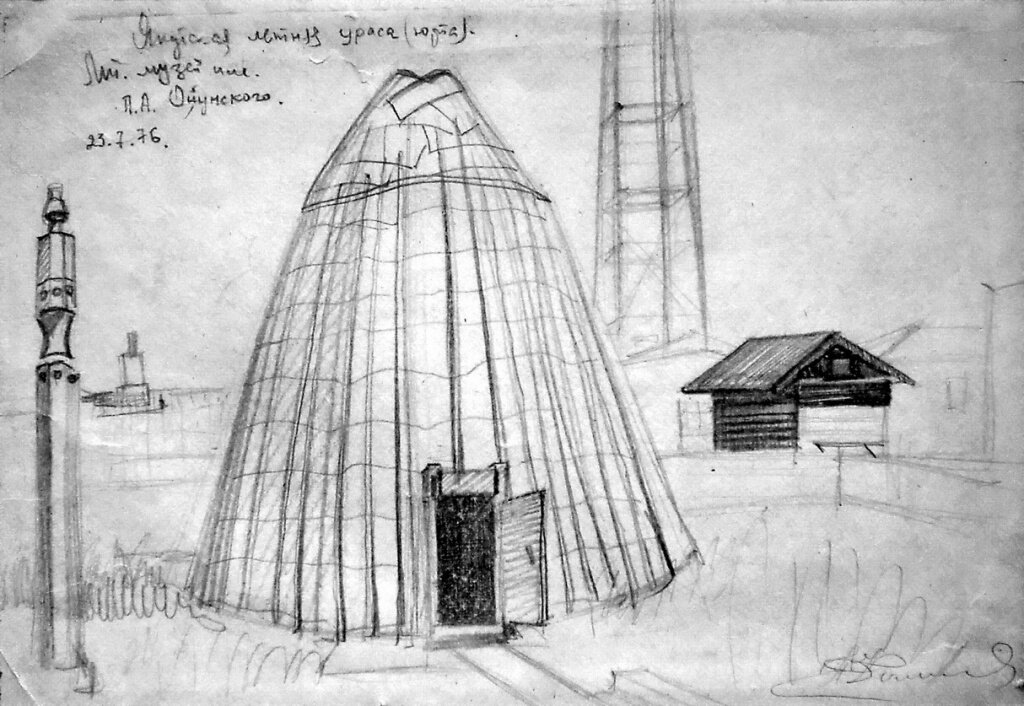 Якутская летняя ураса (юрта).
Лит. музей им.
П.А. Ойунского.
23.7.76.